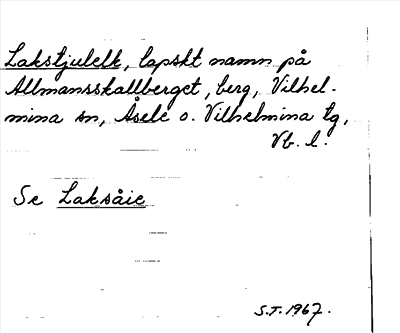 Lakstjulelk, lapskt namn på
Allmansskallberget, berg, Vilhel-
mina sn, Åsele o. Vilhelmina tg,
Vb. l.
Se Laksåie
S.T. 1967.